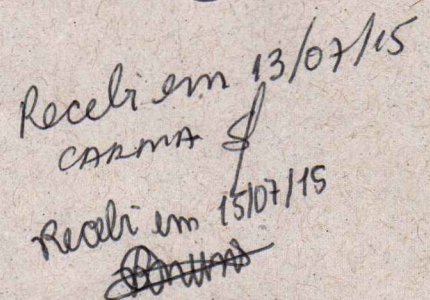 Recebi em 13/07/15
CARMA
Recebi em 15/07/15